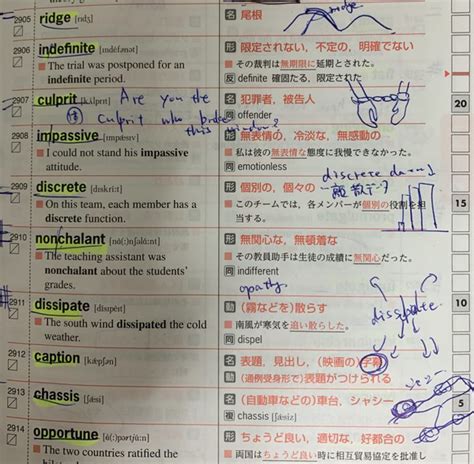 2905 ridge [rídʒ] 名 尾根
ridge
2906 indefinite [indéfənət] 形 限定されない, 不定の, 明確でない
The trial was postponed for an indefinite period.
その裁判は無期限に延期された。
反 definite 確固たる, 限定された
2907 culprit [kʌ́lprit] 名 犯罪者, 被告人
同 offender
Are you the
culprit who broke
this window?
2908 impassive [impǽsiv] 形 無表情の, 冷淡な, 無感動の
I could not stand his impassive attitude.
私は彼の無表情な態度に我慢できなかった。
同 emotionless
2909 discrete [diskríːt] 形 個別の, 個々の
discrete data
離散データ
On this team, each member has a discrete function.
このチームでは, 各メンバーが個別の役割を担当する。
2910 nonchalant [nɑ̀(ː)nʃəlɑ́ːnt] 形 無関心な, 無頓着な
The teaching assistant was nonchalant about the students' grades.
その教員助手は生徒の成績に無関心だった。
同 indifferent
apathy
2911 dissipate [dísipèit] 動 (霧などを)散らす
dissipate
The south wind dissipated the cold weather.
南風が寒気を追い散らした。
同 dispel
2912 caption [kǽpʃən] 名 表題, 見出し, (映画の)字幕
動 (通例受身形で)表題がつけられる
2913 chassis [ʃǽsi] 名 (自動車などの)車台, シャシー
複 chassis [ʃǽsiz]
シャシー
2914 opportune [ɑ̀(ː)pərtjúːn] 形 ちょうど良い, 適切な, 好都合の
The two countries ratified the
両国はちょうど良い時に相互貿易協定を批准し
20
15
10
5